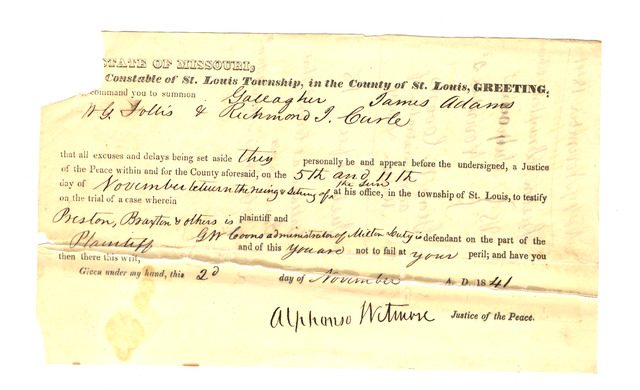 STATE OF MISSOURI,
Constable of St. Louis Township, in the County of St. Louis, GREETING:
command you to summon Gallagher James Adams
W G Follis & Richmond J. Curle
that all excuses and delays being set aside they personally be and appear before the undersigned, a Justice
of the Peace within and for the County aforesaid, on the 5th and 11th
day of November between the rising & setting of the sun at his office, in the township of St. Louis, to testify
on the trial of a case wherein
Preston, Braxton & others is plaintiff and
G W Coons administrator of Milton Duty is defendant on the part of the
Plaintiff and of this you are not to fail at your peril; and have you
then there this writ,
Given under my hand, this 2d day of November A. D. 1841
Alphonso Wetmore Justice of the Peace.